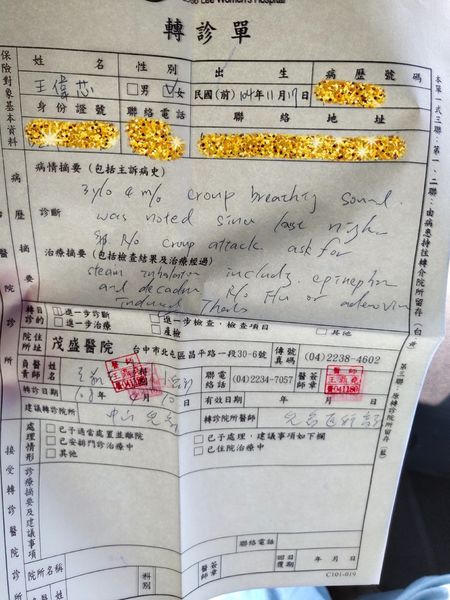 Lee Women's Hospital
轉診單
保險對象基本資料
姓名 性別 出生 病歷號碼
王偉芯 □男 ☑女 民國(前)104年11月17日
身份證號 聯絡電話 聯絡地址
病歷摘要
病情摘要(包括主訴病史)
3 y/o 4 m/o croup breathing sound
was noted since last night
診斷
R/o croup attack ask for
治療摘要(包括檢查結果及治療經過)
steam inhalation includg. epinephrin
and decadron R/o Flu or adenovirus
induced Thanks
轉診目的
□進一步診斷 □進一步檢查,檢查項目
□進一步治療 □產檢 □其他
院所住址 茂盛醫院 台中市北屯區昌平路一段30-6號 傳真號碼 (04)2238-4602
負責醫師姓名 聯絡電話 (04)2234-7057 醫師簽章
轉診日期 108年 月10日 有效日期 年 月 日
建議轉診院所 中山 兒急 轉診院所醫師
處理情形
□已予適當處置並離院 □已予處理,建議事項如下欄
□已安排門診治療中 □已住院治療中
□其他
診療摘要及建議事項
接受轉診醫院診所
聯絡電話
院所名稱 科別 醫師簽章 回覆日期 年 月 日
C101-019
本單一式三聯:第一、二聯:由病患持往轉介院所留存(白
第三聯:原轉診院所留存(藍)